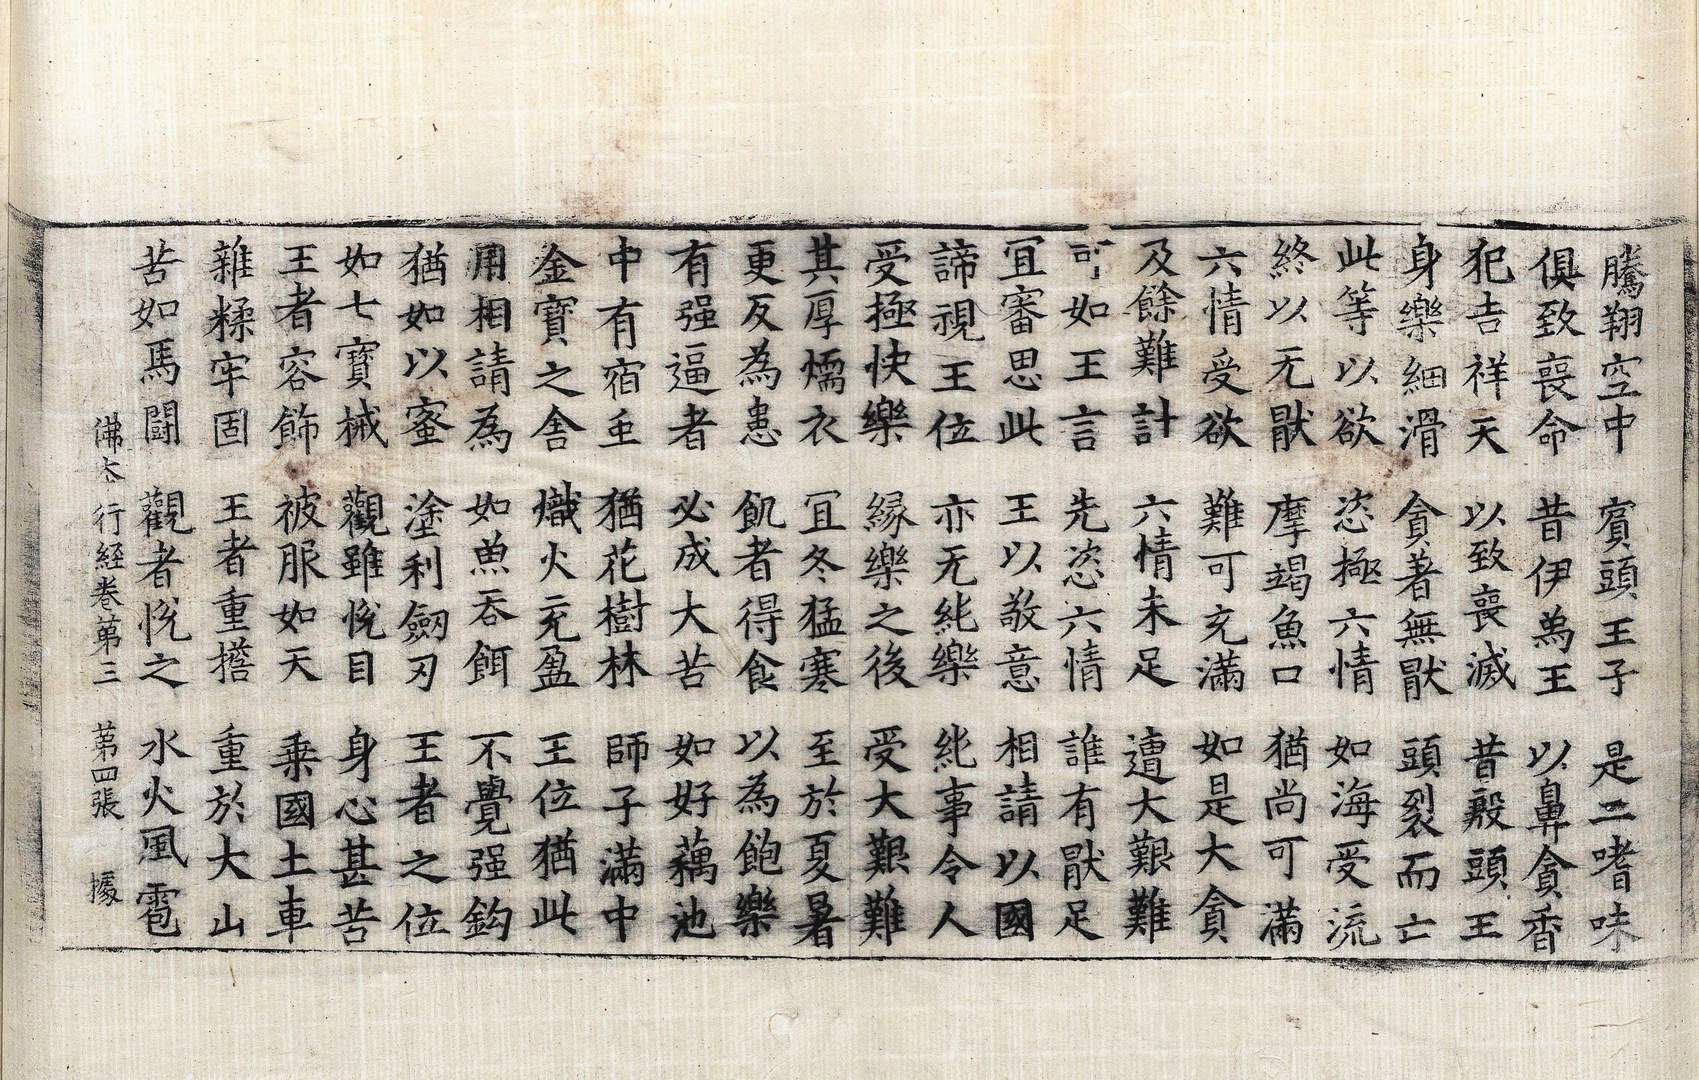 騰翔空中 賓頭王子 是二嗜味
俱致喪命 昔伊為王 以鼻貪香
犯吉祥天 以致喪滅 昔㲉頭王
身樂細滑 貪著無猒 頭裂而亡
此等以欲 恣極六情 如海受流
終以无猒 摩竭魚口 猶尚可滿
六情受欲 難可充滿 如是大貪
及餘難計 六情未足 遭大艱難
可如王言 先恣六情 誰有猒足
冝審思此 王以敬意 相請以國
諦視王位 亦无純樂 純事令人
受極快樂 縁樂之後 受大艱難
其厚燸衣 冝冬猛寒 至於夏暑
更反為患 飢者得食 以為飽樂
有强逼者 必成大苦 如好藕池
中有宿𠂹 猶花樹林 師子滿中
金寶之舎 熾火充盈 王位猶此
用相請為 如魚吞餌 不覺强鈎
猶如以蜜 塗利劔刃 王者之位
如七寶械 觀雖悅目 身心甚苦
王者容飾 被服如天 乗國土車
雜糅牢固 王者重擔 重於大山
苦如馬鬪 觀者悅之 水火風雹
佛夲行經卷第三 第四張 據